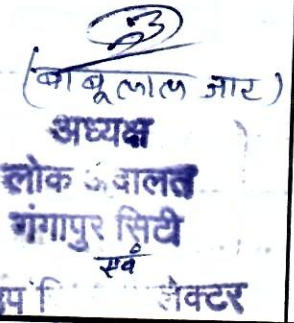 (बाबूलाल जाट)
अध्यक्ष
लोक अदालत
गंगापुर सिटी
एवं